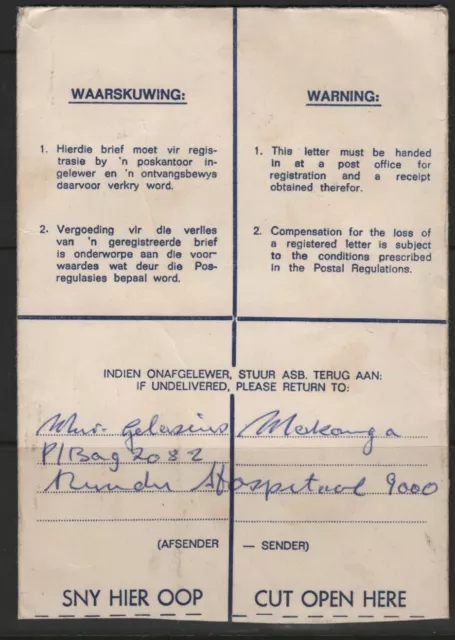 WAARSKUWING:
1. Hierdie brief moet vir regis-
trasie by 'n poskantoor in-
gelewer en 'n ontvangsbewys
daarvoor verkry word.
2. Vergoeding vir die verlies
van 'n geregistreerde brief
is onderworpe aan die voor-
waardes wat deur die Pos-
regulasies bepaal word.
WARNING:
1. This letter must be handed
in at a post office for
registration and a receipt
obtained therefor.
2. Compensation for the loss of
a registered letter is subject
to the conditions prescribed
in the Postal Regulations.
INDIEN ONAFGELEWER, STUUR ASB. TERUG AAN:
IF UNDELIVERED, PLEASE RETURN TO:
Mnr. Gelasius Makanga
P/Bag 2082
Rundu Hospitaal 9000
(AFSENDER — SENDER)
SNY HIER OOP CUT OPEN HERE